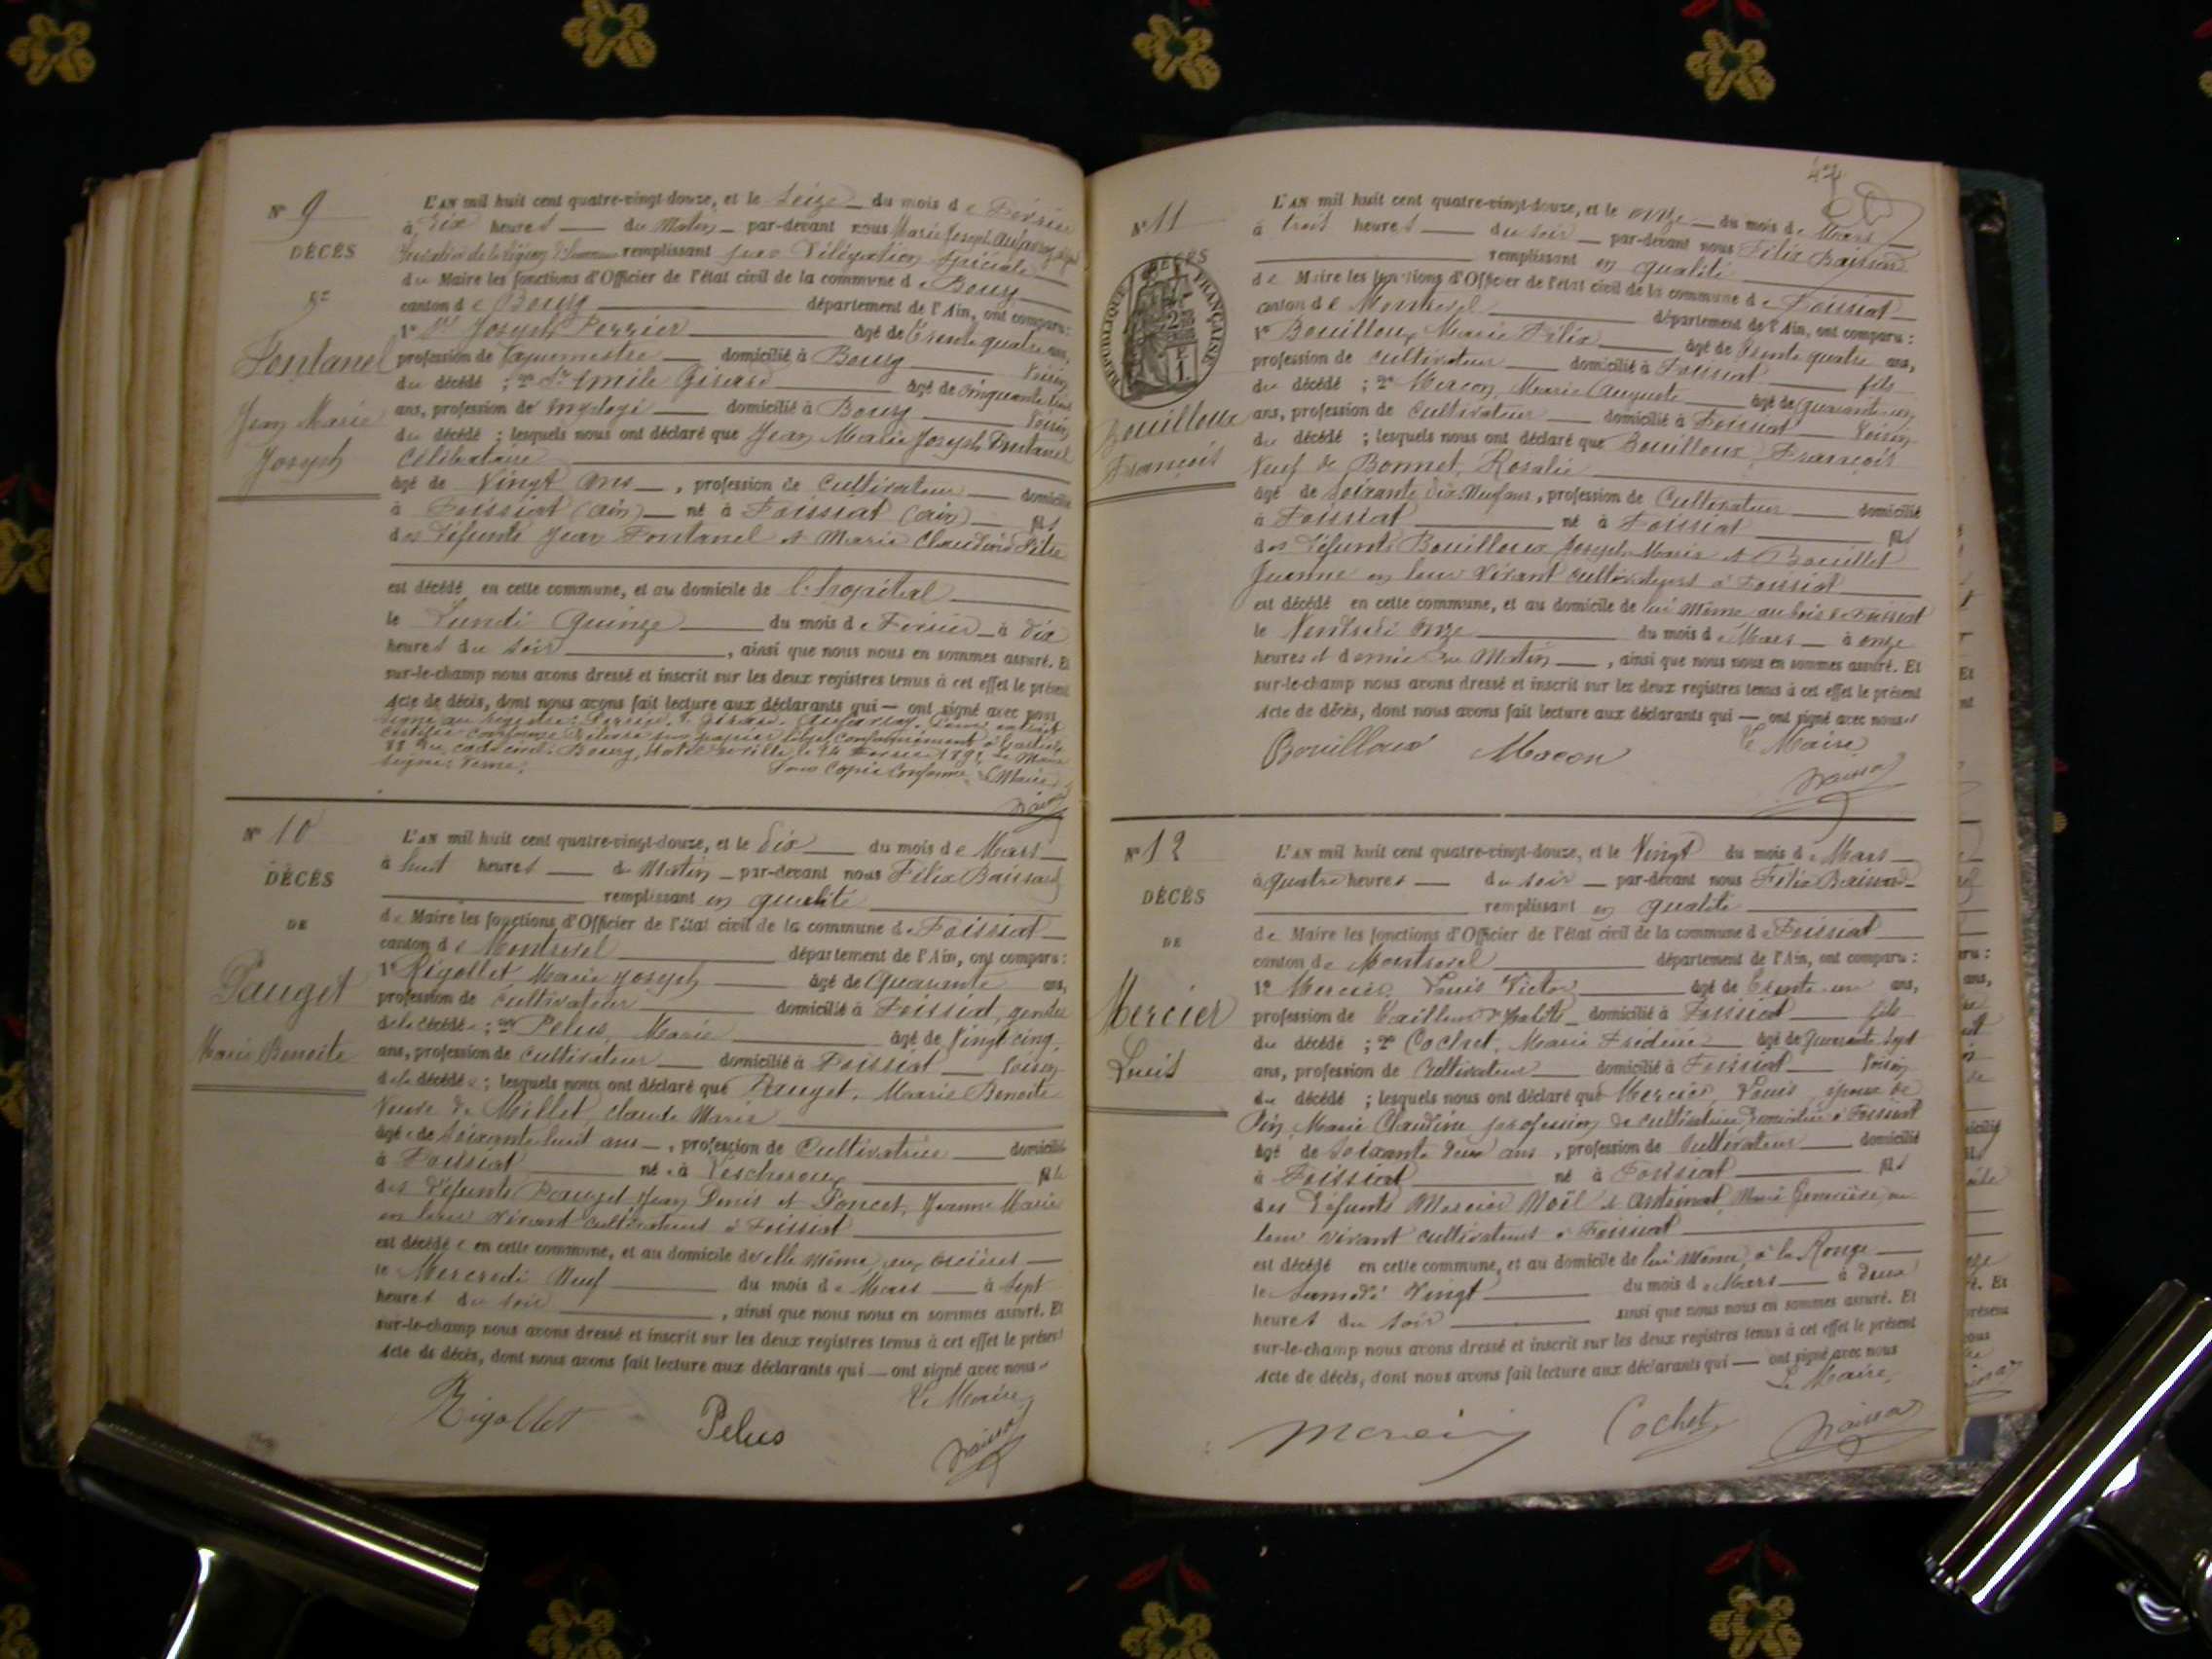 N° 9
DÉCÈS
de
Fontanel
Jean Marie
Joseph
L'AN mil huit cent quatre-vingt-douze, et le Seize du mois de Février
à dix heures du Matin par-devant nous Marie Joseph
remplissant par Délégation Spéciale
du Maire les fonctions d'Officier de l'état civil de la commune de Bourg
canton de Bourg département de l'Ain, ont comparu :
1° Sr Joseph Perrier âgé de trente quatre ans,
profession de Vaguemestre domicilié à Bourg Voisin
du décédé ; 2° Sr Emile Girard âgé de cinquante
ans, profession de employé domicilié à Bourg Voisin
du décédé ; lesquels nous ont déclaré que Jean Marie Joseph Fontanel
Célibataire
âgé de Vingt ans, profession de Cultivateur domicilié
à Foissiat (Ain) né à Foissiat (Ain) fils
des défunts Jean Fontanel et Marie Claudine
est décédé en cette commune, et au domicile de l'hopital
le Lundi Quinze du mois de Février à dix
heures du soir, ainsi que nous nous en sommes assuré. Et
sur-le-champ nous avons dressé et inscrit sur les deux registres tenus à cet effet le présent
Acte de décès, dont nous avons fait lecture aux déclarants qui — ont signé avec nous
signé au registre: Perrier, E. Girard,
certifié conforme
du code civil. Bourg, Hotel de ville, le
Pour Copie Conforme Le Maire
N° 10
DÉCÈS
DE
Pauget
Marie Benoite
L'AN mil huit cent quatre-vingt-douze, et le dix du mois de Mars
à huit heures du Matin par-devant nous Félix Baissard
remplissant en qualité
de Maire les fonctions d'Officier de l'état civil de la commune de Foissiat
canton de Montrevel département de l'Ain, ont comparu :
1° Rigollet Marie Joseph âgé de Quarante ans,
profession de Cultivateur domicilié à Foissiat, gendre
de la décédée ; 2° Pelus, Marie âgé de Vingt cinq
ans, profession de cultivateur domicilié à Foissiat Voisin
de la décédée ; lesquels nous ont déclaré que Pauget, Marie Benoite
Veuve de Millet, Claude Marie
âgée de soixante huit ans, profession de Cultivatrice domiciliée
à Foissiat née à Lescheroux fille
des défunts Pauget Jean Denis et Poncet, Jeanne Marie
en leur vivant cultivateurs à Foissiat
est décédée en cette commune, et au domicile de elle même, aux
le Mercredi Neuf du mois de Mars à sept
heures du soir, ainsi que nous nous en sommes assuré. Et
sur-le-champ nous avons dressé et inscrit sur les deux registres tenus à cet effet le présent
Acte de décès, dont nous avons fait lecture aux déclarants qui — ont signé avec nous
Le Maire
Rigollet Pelus
N° 11
DÉCÈS
RÉPUBLIQUE FRANÇAISE
Bouilloux
François
L'AN mil huit cent quatre-vingt-douze, et le onze du mois de Mars
à trois heures du soir par-devant nous Félix Baissard
remplissant en qualité
de Maire les fonctions d'Officier de l'état civil de la commune de Foissiat
canton de Montrevel département de l'Ain, ont comparu :
1° Bouilloux, Marie Félix âgé de trente quatre ans,
profession de cultivateur domicilié à Foissiat fils
du décédé ; 2° Marcon, Marie Auguste âgé de quarante un
ans, profession de Cultivateur domicilié à Foissiat Voisin
du décédé ; lesquels nous ont déclaré que Bouilloux, François
Veuf de Bonnet, Rosalie
âgé de soixante dix Neuf ans, profession de Cultivateur domicilié
à Foissiat né à Foissiat fils
des défunts Bouilloux Joseph Marie et Bouillet
Jeanne en leur vivant cultivateurs à Foissiat
est décédé en cette commune, et au domicile de lui même au bois de Foissiat
le Vendredi onze du mois de Mars à onze
heures et demie du Matin, ainsi que nous nous en sommes assuré. Et
sur-le-champ nous avons dressé et inscrit sur les deux registres tenus à cet effet le présent
Acte de décès, dont nous avons fait lecture aux déclarants qui — ont signé avec nous
Le Maire
Bouilloux Macon
N° 12
DÉCÈS
DE
Mercier
Louis
L'AN mil huit cent quatre-vingt-douze, et le Vingt du mois de Mars
à quatre heures du soir par-devant nous Félix Baissard
remplissant en qualité
de Maire les fonctions d'Officier de l'état civil de la commune de Foissiat
canton de Montrevel département de l'Ain, ont comparu :
1° Mercier, Louis Victor âgé de trente un ans,
profession de Tailleur d'habits domicilié à Foissiat fils
du décédé ; 2° Cochet, Marie Frédéric âgé de Quarante sept
ans, profession de Cultivateur domicilié à Foissiat Voisin
du décédé ; lesquels nous ont déclaré que Mercier, Louis, époux de
Pin, Marie Claudine profession de cultivatrice, domiciliée à Foissiat
âgé de soixante deux ans, profession de cultivateur domicilié
à Foissiat né à Foissiat fils
des défunts Mercier Noël et Antoinat, Marie Geneviève, en
leur vivant cultivateurs à Foissiat
est décédé en cette commune, et au domicile de lui même, à la Ronge
le Samedi Vingt du mois de Mars à deux
heures du soir ainsi que nous nous en sommes assuré. Et
sur-le-champ nous avons dressé et inscrit sur les deux registres tenus à cet effet le présent
Acte de décès, dont nous avons fait lecture aux déclarants qui — ont signé avec nous
Le Maire,
Mercier Cochet